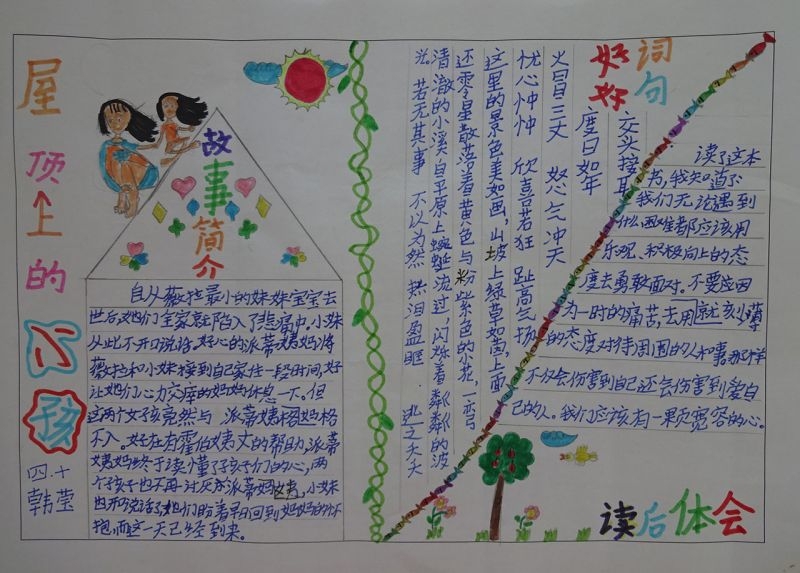 屋顶上的小孩
四.十
韩莹
故事简介
自从薇拉最小的妹妹宝宝去
世后,她们全家就陷入了悲痛中。小妹
从此不开口说话。好心的派蒂姨妈将
薇拉和小妹接到自己家住一段时间,好
让她们心力交瘁的妈妈休息一下。但
这两个女孩竟然与派蒂姨格格
不入。好在有霍伯姨丈的帮助,派蒂
姨妈终于读懂了孩子们的心,两
个孩子也不再讨厌派蒂姨妈,小妹
也开口说话了她们盼着早日回到妈妈的怀
抱,而这一天已经到来。
好词好句
交头接耳
度日如年
火冒三丈 怒气冲天
忧心忡忡 欣喜若狂 趾高气扬
这里的景色美如画,山坡上绿草如茵,上面
还零星散落着黄色与粉紫色的小花,一弯
清澈的小溪自平原上蜿蜒流过,闪烁着粼粼的波
光 若无其事 不以为然 热泪盈眶 逃之夭夭
读了这本
书,我知道了
我们无论遇到
什么困难都应该用
乐观、积极向上的态
度去勇敢面对。不要应因
为一时的痛苦,去用就刻薄
的态度对待周围的人和事,那样
不仅会伤害到自己还会伤害到爱自
己的人。我们应该有一颗宽容的心。
读后体会